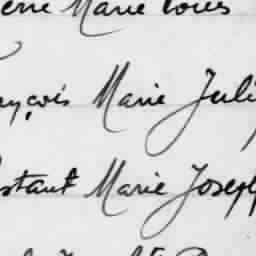 Marie Louis
ançois Marie Juli
stant Marie Joseph